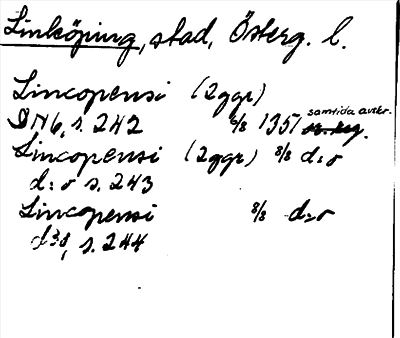 Linköping, stad, Österg. l.
Lincopensi (2ggr)
DN6, s. 242 6/8 1351 samtida avskr.
Lincopensi (2ggr) 8/8 d:o
d:o s. 243
Lincopensi 8/8 d:o
d:o, s. 244